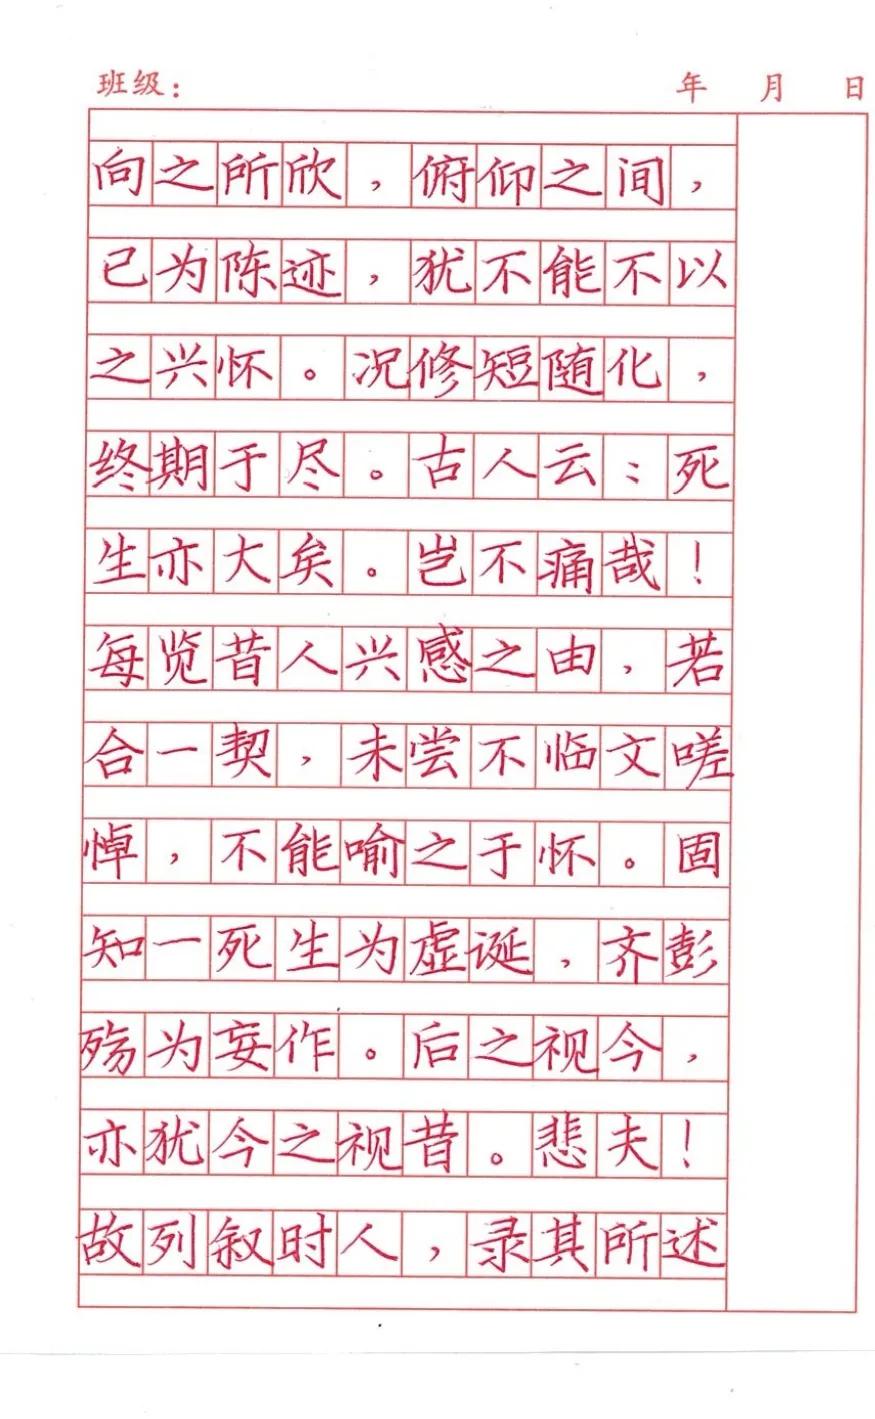 班级： 年 月 日
向之所欣，俯仰之间，
已为陈迹，犹不能不以
之兴怀。况修短随化，
终期于尽。古人云：死
生亦大矣。岂不痛哉！
每览昔人兴感之由，若
合一契，未尝不临文嗟
悼，不能喻之于怀。固
知一死生为虚诞，齐彭
殇为妄作。后之视今，
亦犹今之视昔。悲夫！
故列叙时人，录其所述